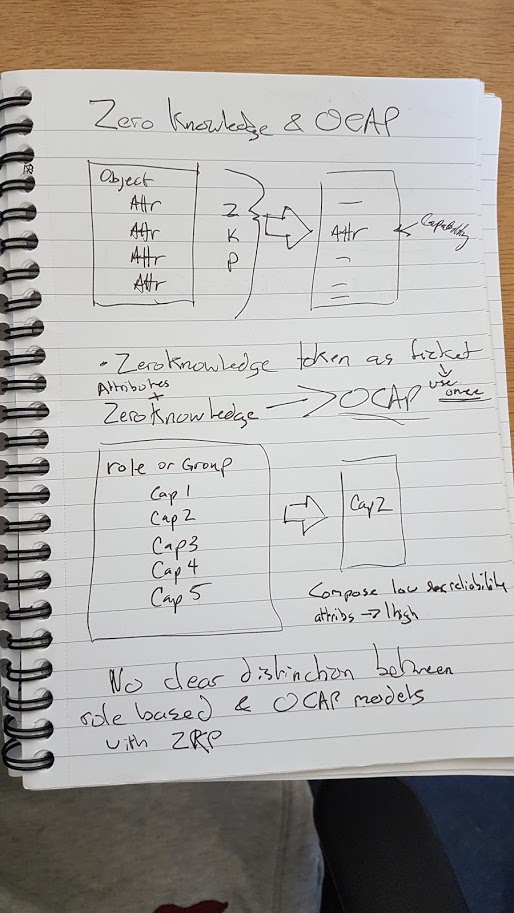 Zero Knowledge & OCAP
Object
Attr
Attr
Attr
Attr
Z
K
P
Attr
Capability
• Zero Knowledge token as ticket
use
once
Attributes
+
Zero Knowledge → OCAP
role or Group
Cap 1
Cap 2
Cap 3
Cap 4
Cap 5
Cap 2
Compose low reliability
attribs → High
No clear distinction between
role based & OCAP models
with ZKP